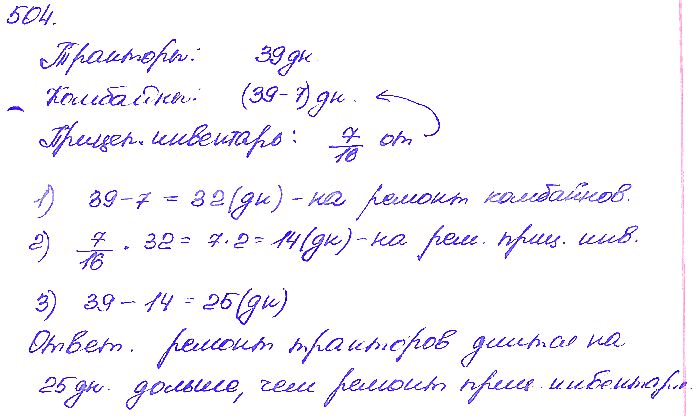 504.
Тракторы: 39 дн.
Комбайны: (39-7) дн.
Прицеп. инвентарь: 7/16 от
1) 39-7 = 32 (дн) - на ремонт комбайнов.
2) 7/16 · 32 = 7·2 = 14 (дн) - на рем. приц. инв.
3) 39 - 14 = 25 (дн)
Ответ. ремонт тракторов длится на
25 дн. дольше, чем ремонт приц. инвентаря.